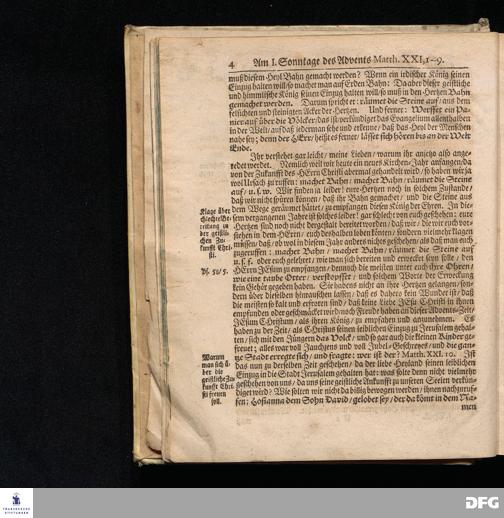 4 Am I. Sonntage des Advents Matth. XXI, 1-9.
muß diesem Heyl Bahn gemacht werden? Wenn ein irdischer König seinen
Einzug halten will / so machet man auf Erden Bahn: Da aber dieser geistliche
und himmlische König seinen Einzug halten will / so muß in den Hertzen Bahn
gemachet werden. Darum spricht er: räumet die Steine auf / aus dem
felsichten und steinigten Acker der Hertzen. Und ferner: Werffet ein Pa-
nier auf über die Völcker / das ist verkündiget das Evangelium allenthalben
in der Welt / auf daß iederman sehe und erkenne / daß das Heyl der Menschen
nahe sey; denn der HErr / heist es ferner / lässet sich hören bis an der Welt
Ende.
Ihr verstehet gar leicht / meine Lieben / warum ihr anietzo also ange-
redet werdet. Nemlich weil wir heute ein neues Kirchen-Jahr anfangen / da
von der Zukunfft des HErrn Christi abermal gehandelt wird / so haben wir ja
wol Ursach zu ruffen: machet Bahn / machet Bahn / räumet die Steine
auf / u. s. w. Wir finden ja leider! eure Hertzen noch in solchem Zustande /
daß wir nicht spüren können / daß ihr Bahn gemachet / und die Steine aus
dem Wege geräumet hättet / zu empfangen diesen König der Ehren. In die-
sem vergangenen Jahre ist solches leider! gar schlecht von euch geschehen: eure
Hertzen sind noch nicht dergestalt bereitet worden / daß wir / die wir euch vor-
stehen in dem HErrn / euch deshalben loben könten / sondern vielmehr klagen
müssen / daß / ob wol in diesem Jahr anders nichts geschehen / als daß man euch
zugeruffen: machet Bahn / machet Bahn / räumet die Steine auf
u. s. f. oder euch gelehret / wie man sich bereiten und erwecket seyn solle / den
HErrn JEsum zu empfangen / dennoch die meisten unter euch ihre Ohren /
wie eine taube Otter / verstopffet / und solchem Worte der Erweckung
kein Gehör gegeben haben. Sie haben es nicht an ihre Hertzen gelangen / son-
dern über dieselben hinrauschen lassen / daß es dahero kein Wunder ist / daß
die meisten so kalt und erfroren sind / daß keine Liebe JEsu Christi in ihnen
empfunden oder geschmäcket wird / noch Freude haben an dieser Advents-Zeit /
JEsum Christum / als ihren König / zu empfahen und anzunehmen. Es
haben zu der Zeit / als Christus seinen leiblichen Einzug zu Jerusalem gehal-
ten / sich mit den Jüngern das Volck / und so gar auch die kleinen Kinder ge-
freuet; alles war voll Jauchzens und voll Jubel-Geschreyes / und die gan-
tze Stadt erregte sich / und fragte: wer ist der? Matth. XXI. 10. Ist
das nun zu derselben Zeit geschehen / da der liebe Heyland seinen leiblichen
Einzug in die Stadt Jerusalem gehalten hat: was solte denn nicht vielmehr
geschehen von uns / da uns seine geistliche Ankunfft zu unseren Seelen verkün-
diget wird? Wie solten wir nicht da billig bewogen werden / ihnen nachzuruf-
fen: Hosianna dem Sohn David / gelobet sey / der da kömt in dem Na-
men
Klage über
schlechte Be-
reitung in
der geistli-
chen Zu-
kunfft Chri-
sti.
Ps. 58/5.
Warum
man sich ü-
ber die
geistliche Zu-
kunfft Chri-
sti freuen
soll.
FRANCKESCHE
STIFTUNGEN
DFG